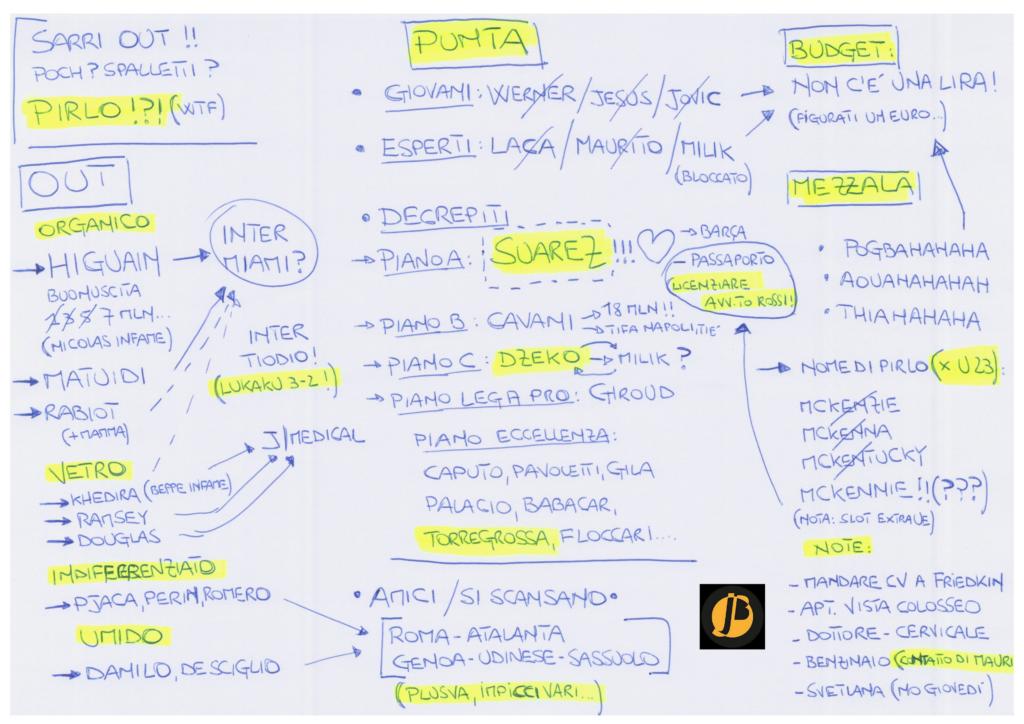 SARRI OUT !!
POCH? SPALLETTI?
PIRLO!?! (WTF)
OUT
ORGANICO
HIGUAIN
BUONUSCITA
7 MLN...
(NICOLAS INFAME)
MATUIDI
RABIOT
(+MAMMA)
INTER
MIAMI?
INTER
TIODIO!
(LUKAKU 3-2!)
VETRO
KHEDIRA (BEPPE INFAME)
RAMSEY
DOUGLAS
J|MEDICAL
INDIFFERENZIATO
PJACA, PERIN, ROMERO
UMIDO
DAMILO, DESCIGLIO
PUMTA
• GIOVANI: WERNER/JESUS/JOVIC
• ESPERTI: LACA/MAURITO/MILIK
(BLOCCATO)
• DECREPITI
PIANO A: SUAREZ!!!
→ BARÇA
- PASSAPORTO
LICENZIARE
AVV.TO ROSSI!
PIANO B: CAVANI → 18 MLN!!
→ TIFA NAPOLI, TIÉ
PIANO C: DZEKO → MILIK?
PIANO LEGA PRO: GIROUD
PIANO ECCELLENZA:
CAPUTO, PAVOLETTI, GILA
PALACIO, BABACAR,
TORREGROSSA, FLOCCARI....
• AMICI/SI SCANSANO •
ROMA-ATALANTA
GENOA-UDINESE-SASSUOLO
(PLUSVA, IMPICCI VARI...)
JB
BUDGET:
NON C'É UNA LIRA!
(FIGURATI UM EURO...)
MEZZALA
• POGBAHAHAHA
• AOUAHAHAHAH
• THIAHAHAHA
→ NOME DI PIRLO (x U23):
MCKENZIE
MCKENNA
MCKENTUCKY
MCKENNIE!!(???)
(NOTA: SLOT EXTRAUE)
NOTE:
- MANDARE CV A FRIEDKIN
- APT. VISTA COLOSSEO
- DOTTORE - CERVICALE
- BENZINAIO (CONTATTO DI MAURI
- SVETLANA (NO GIOVEDÍ)